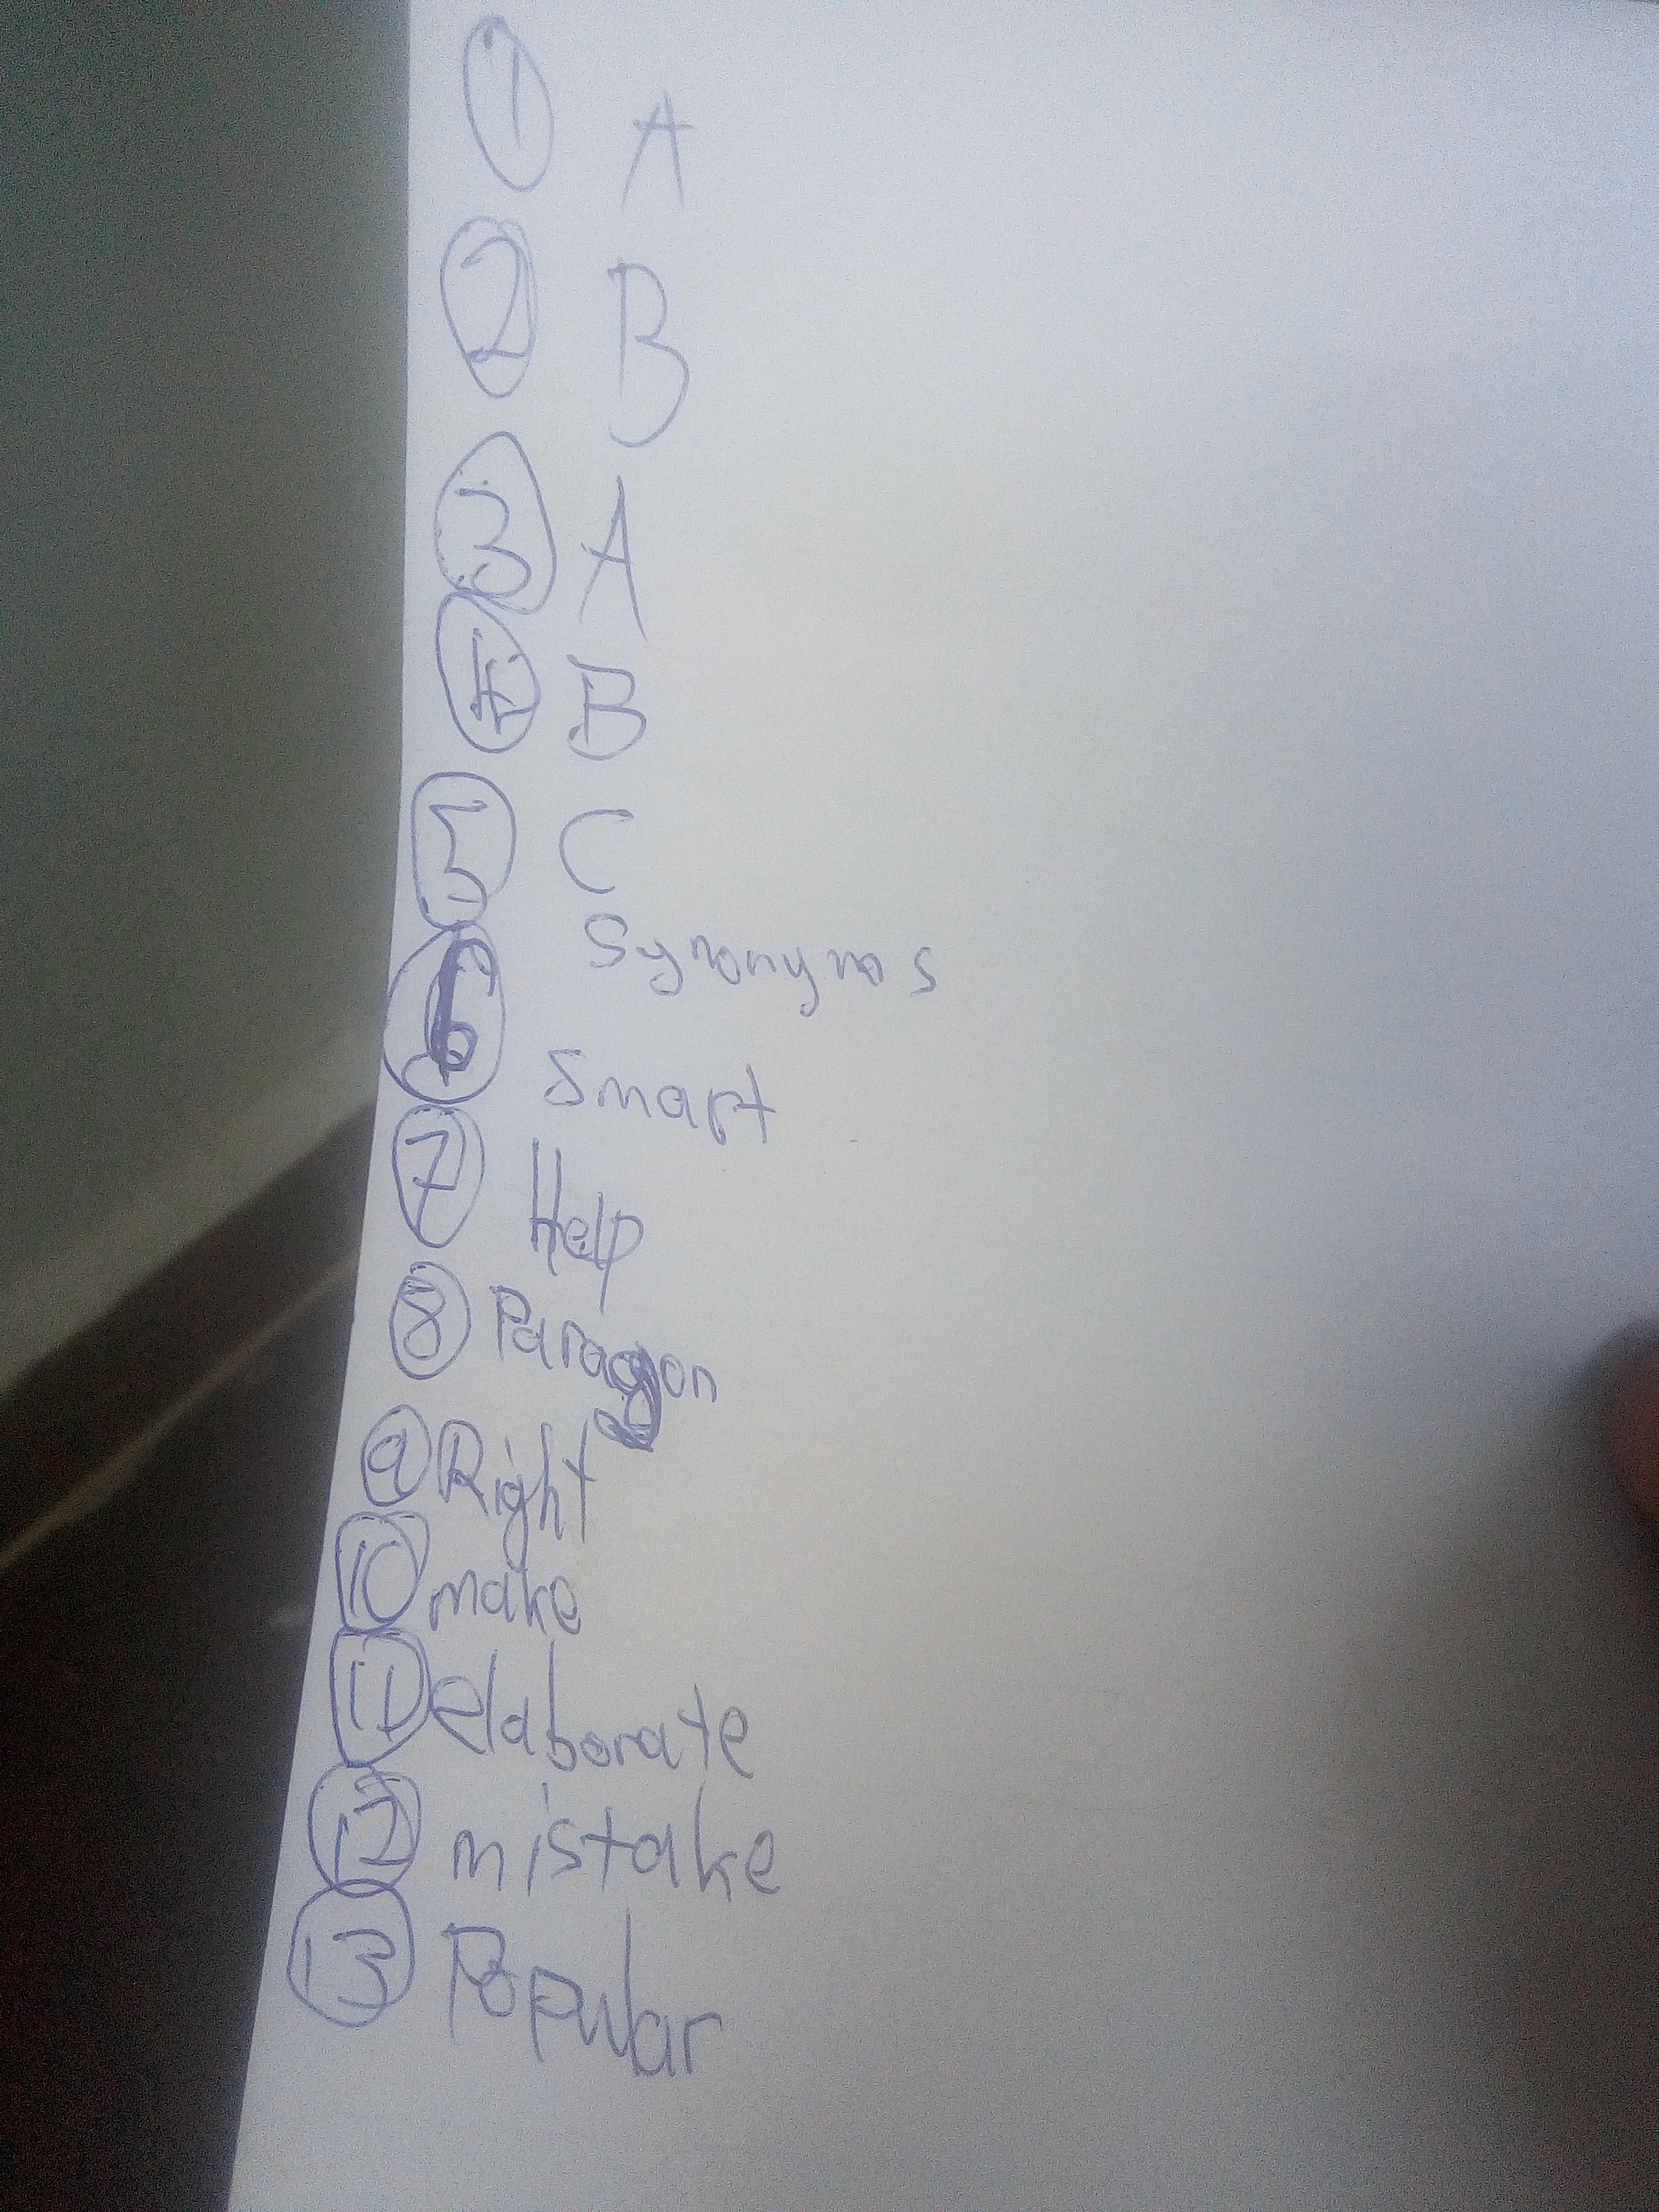 1 A
2 B
3 A
4 B
5 C
Synonyms
6 Smart
7 Help
8 Paragon
9 Right
10 make
11 elaborate
12 mistake
13 Popular